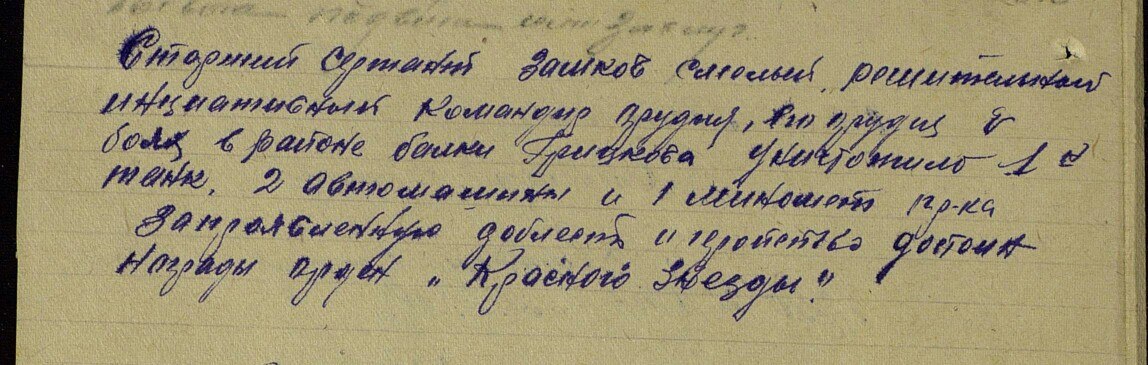 Старший сержант Зашков смелый, решительный
инциативный командир орудия, его орудие в
боях в районе балки Грицкова уничтожило 1
танк, 2 автомашины и 1 миномет пр-ка
За проявленную доблесть и геройство достоин
награды орден „Красного Звезды".